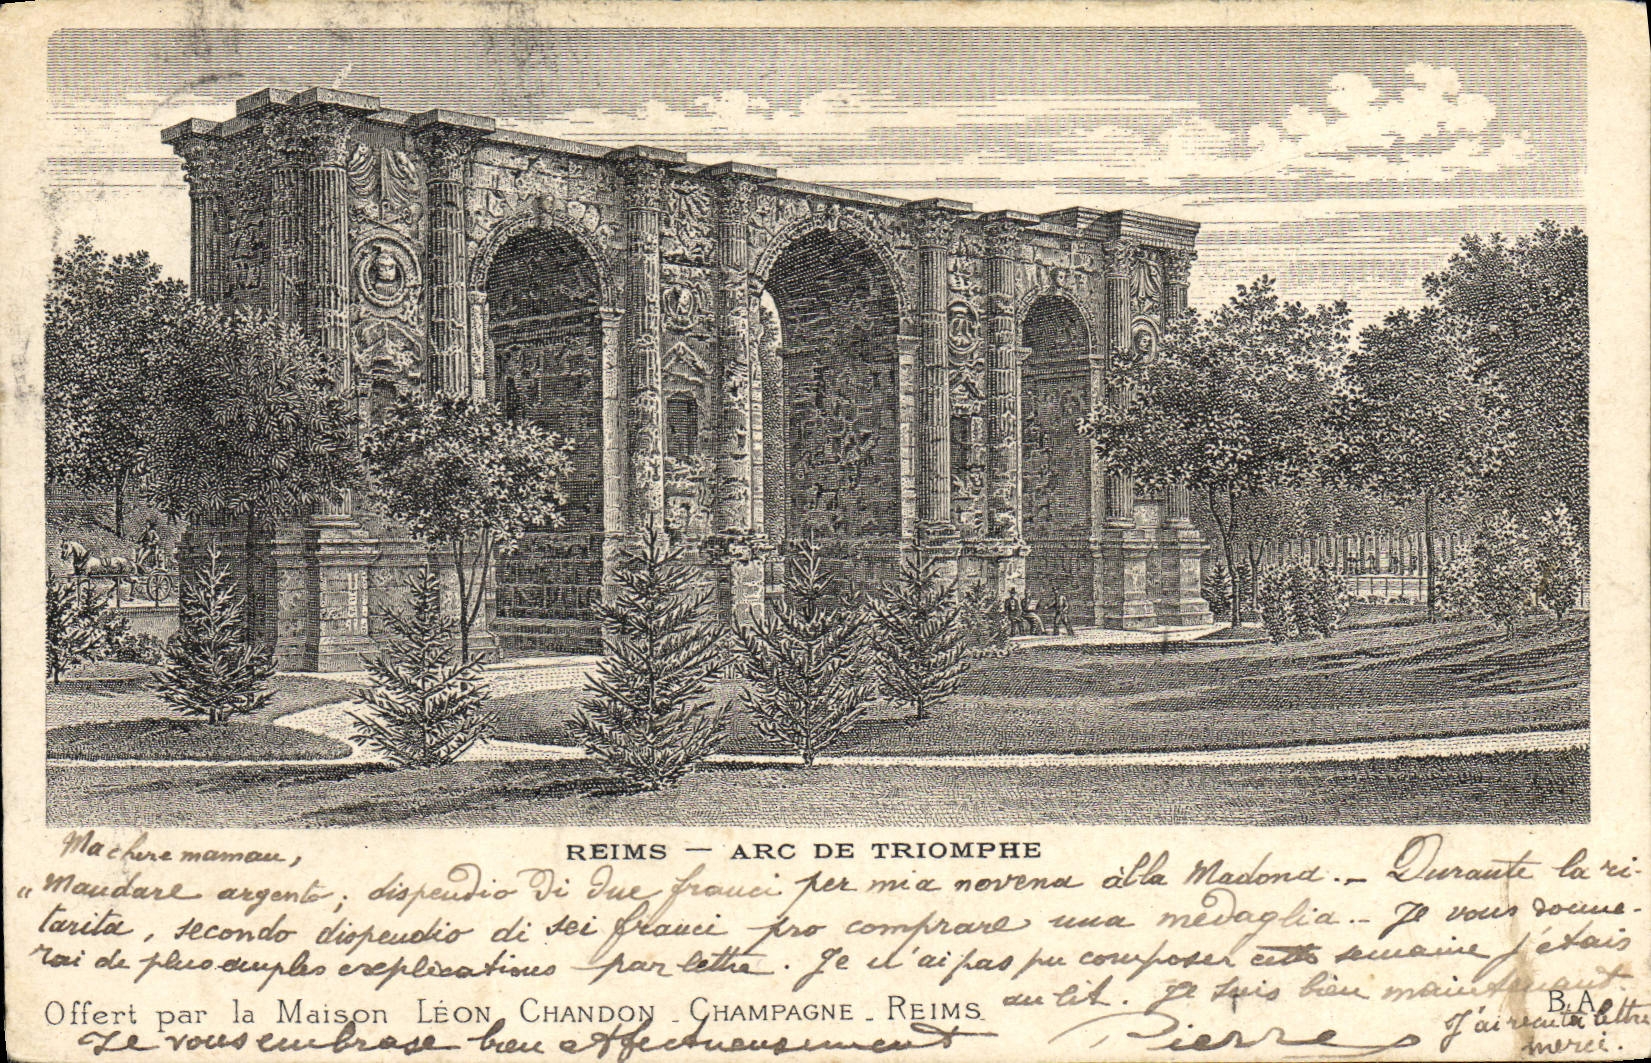 REIMS — ARC DE TRIOMPHE
Ma chere maman,
"Mandare argento; dispendio di due franci per mia novena àlla Madona.- Durante la ri-
tarita, secondo dispendio di sei franci pro comprare una medaglia.- Je vous donne-
rai de plus amples explications par lettre. Je n'ai pas pu composer cette semaine j'étais
au lit. Je suis bien maintenant.
Offert par la Maison LÉON CHANDON - CHAMPAGNE - REIMS
B.A.
Je vous embrasse bien affectueusement Pierre
J'ai reçu ta lettre
merci.